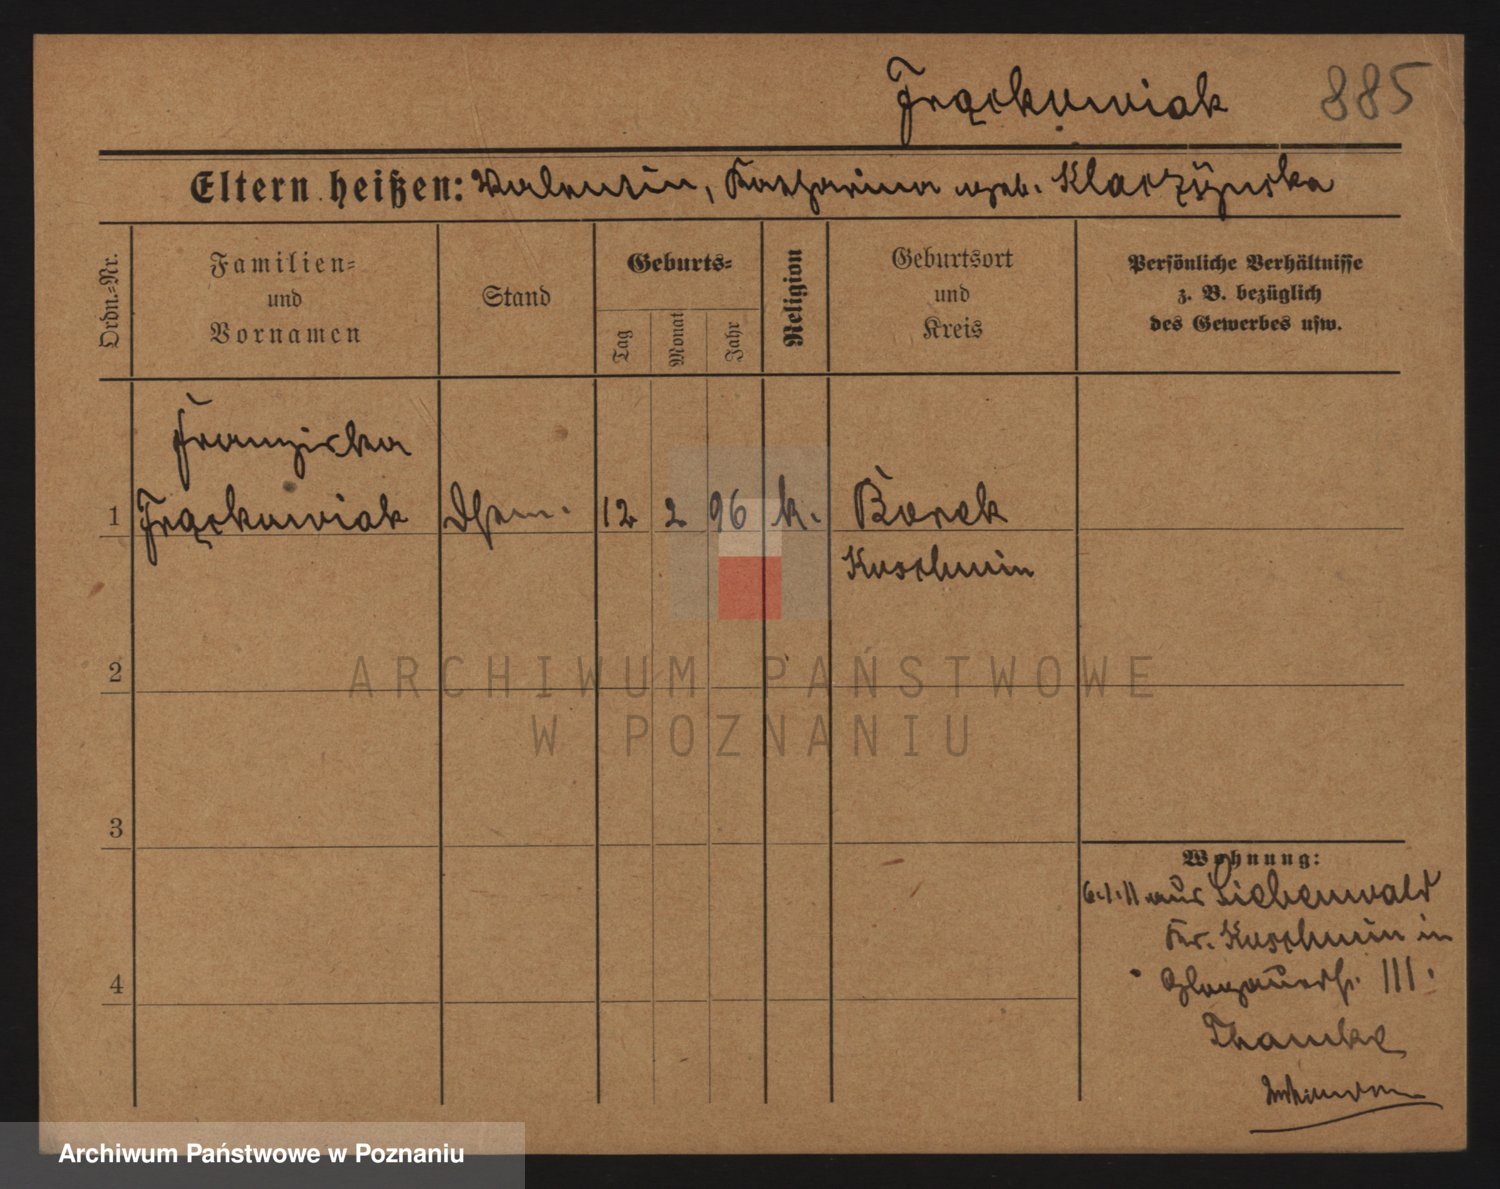 Frąckowiak 885
Eltern heißen: Valentin, Katharina geb. Klaczyńska
Ordn.-Nr.
Familien-
und
Vornamen
Stand
Geburts-
Tag
Monat
Jahr
Religion
Geburtsort
und
Kreis
Persönliche Verhältnisse
z. B. bezüglich
des Gewerbes usw.
Franziska
1 Frąckowiak 12 2 96 k. Borek
Koschmin
2
3
4
Wohnung:
6.1.11 aus Liebenwald
Kr. Koschmin in
Glogauerstr. 111.
ARCHIWUM PAŃSTWOWE
W POZNANIU
Archiwum Państwowe w Poznaniu